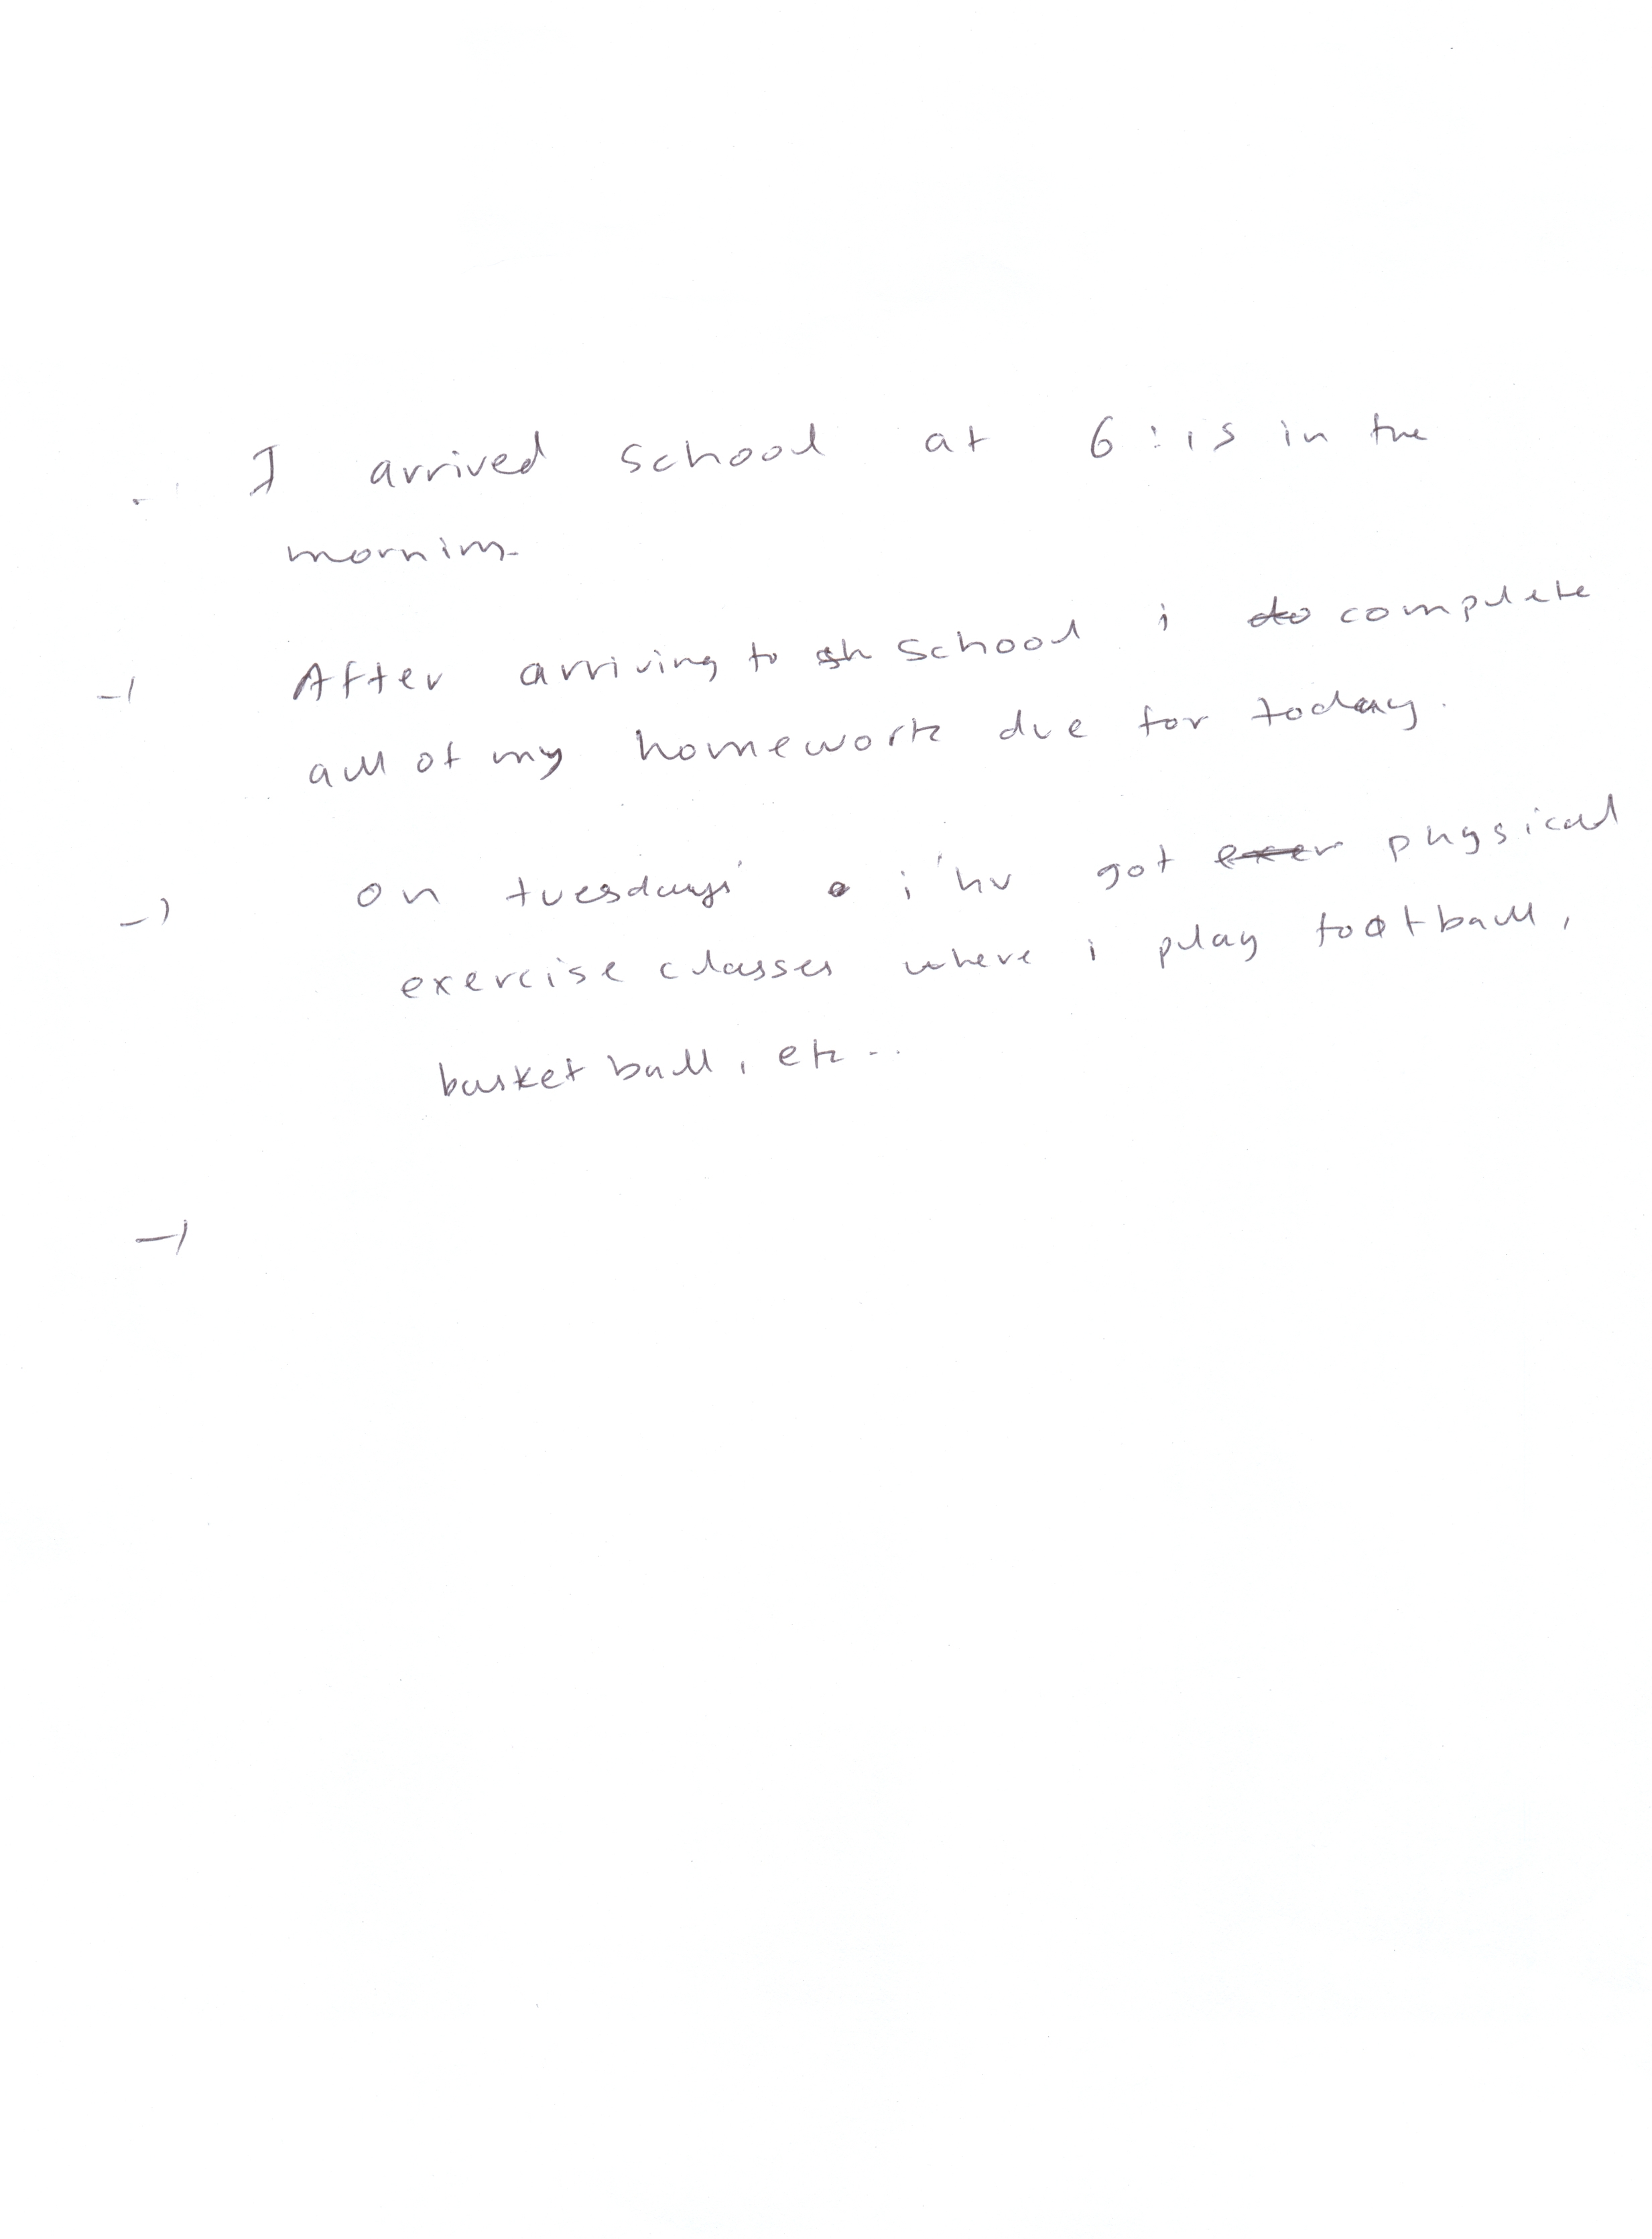 I arrived school at 6:15 in the
morning.
-) After arriving to school i complete
all of my homework due for today.
-) on tuesdays' i'hv got physical
exercise classes where i play football,
basket ball, etc..
-)